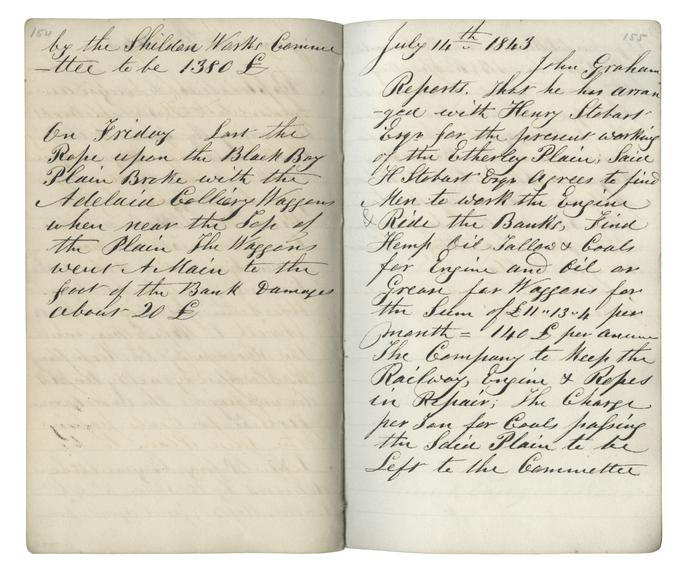 154
by the Shildon Works Comme
-ttee to be 1380 £
On Friday Last the
Rope upon the Black Boy
Plain Broke with the
Adelaid Colliery Waggons
when near the Top of
the Plain The Waggons
went A Main to the
foot of the Bank Damages
about 20 £
155
July 14th 1843
John Graham
Reports. That he has arran
-ged with Henry Stobart
Esqr for the present working
of the Etherley Plain; Said
H Stobart Esqr Agrees to find
Men to work the Engine
& Ride the Banks, Find
Hemp Oil Tallow & Coals
for Engine and Oil or
Grease for Waggons for
the Sum of £11"13"4 per
month = 140 £ per annum
The Company to Keep the
Railway, Engine & Ropes
in Repair; The Charge
per Ton for Coals passing
the Said Plain to be
Left to the Committee